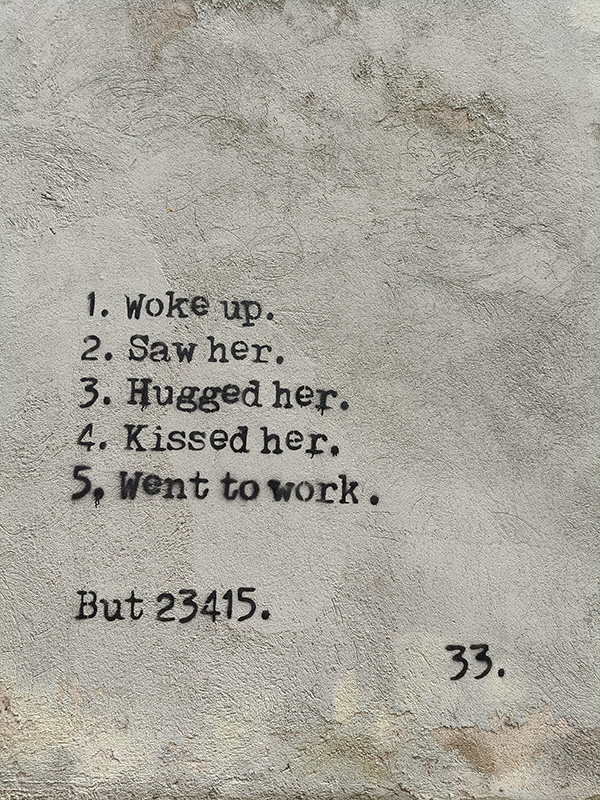 1. Woke up.
2. Saw her.
3. Hugged her.
4. Kissed her.
5. Went to work.
But 23415.
33.